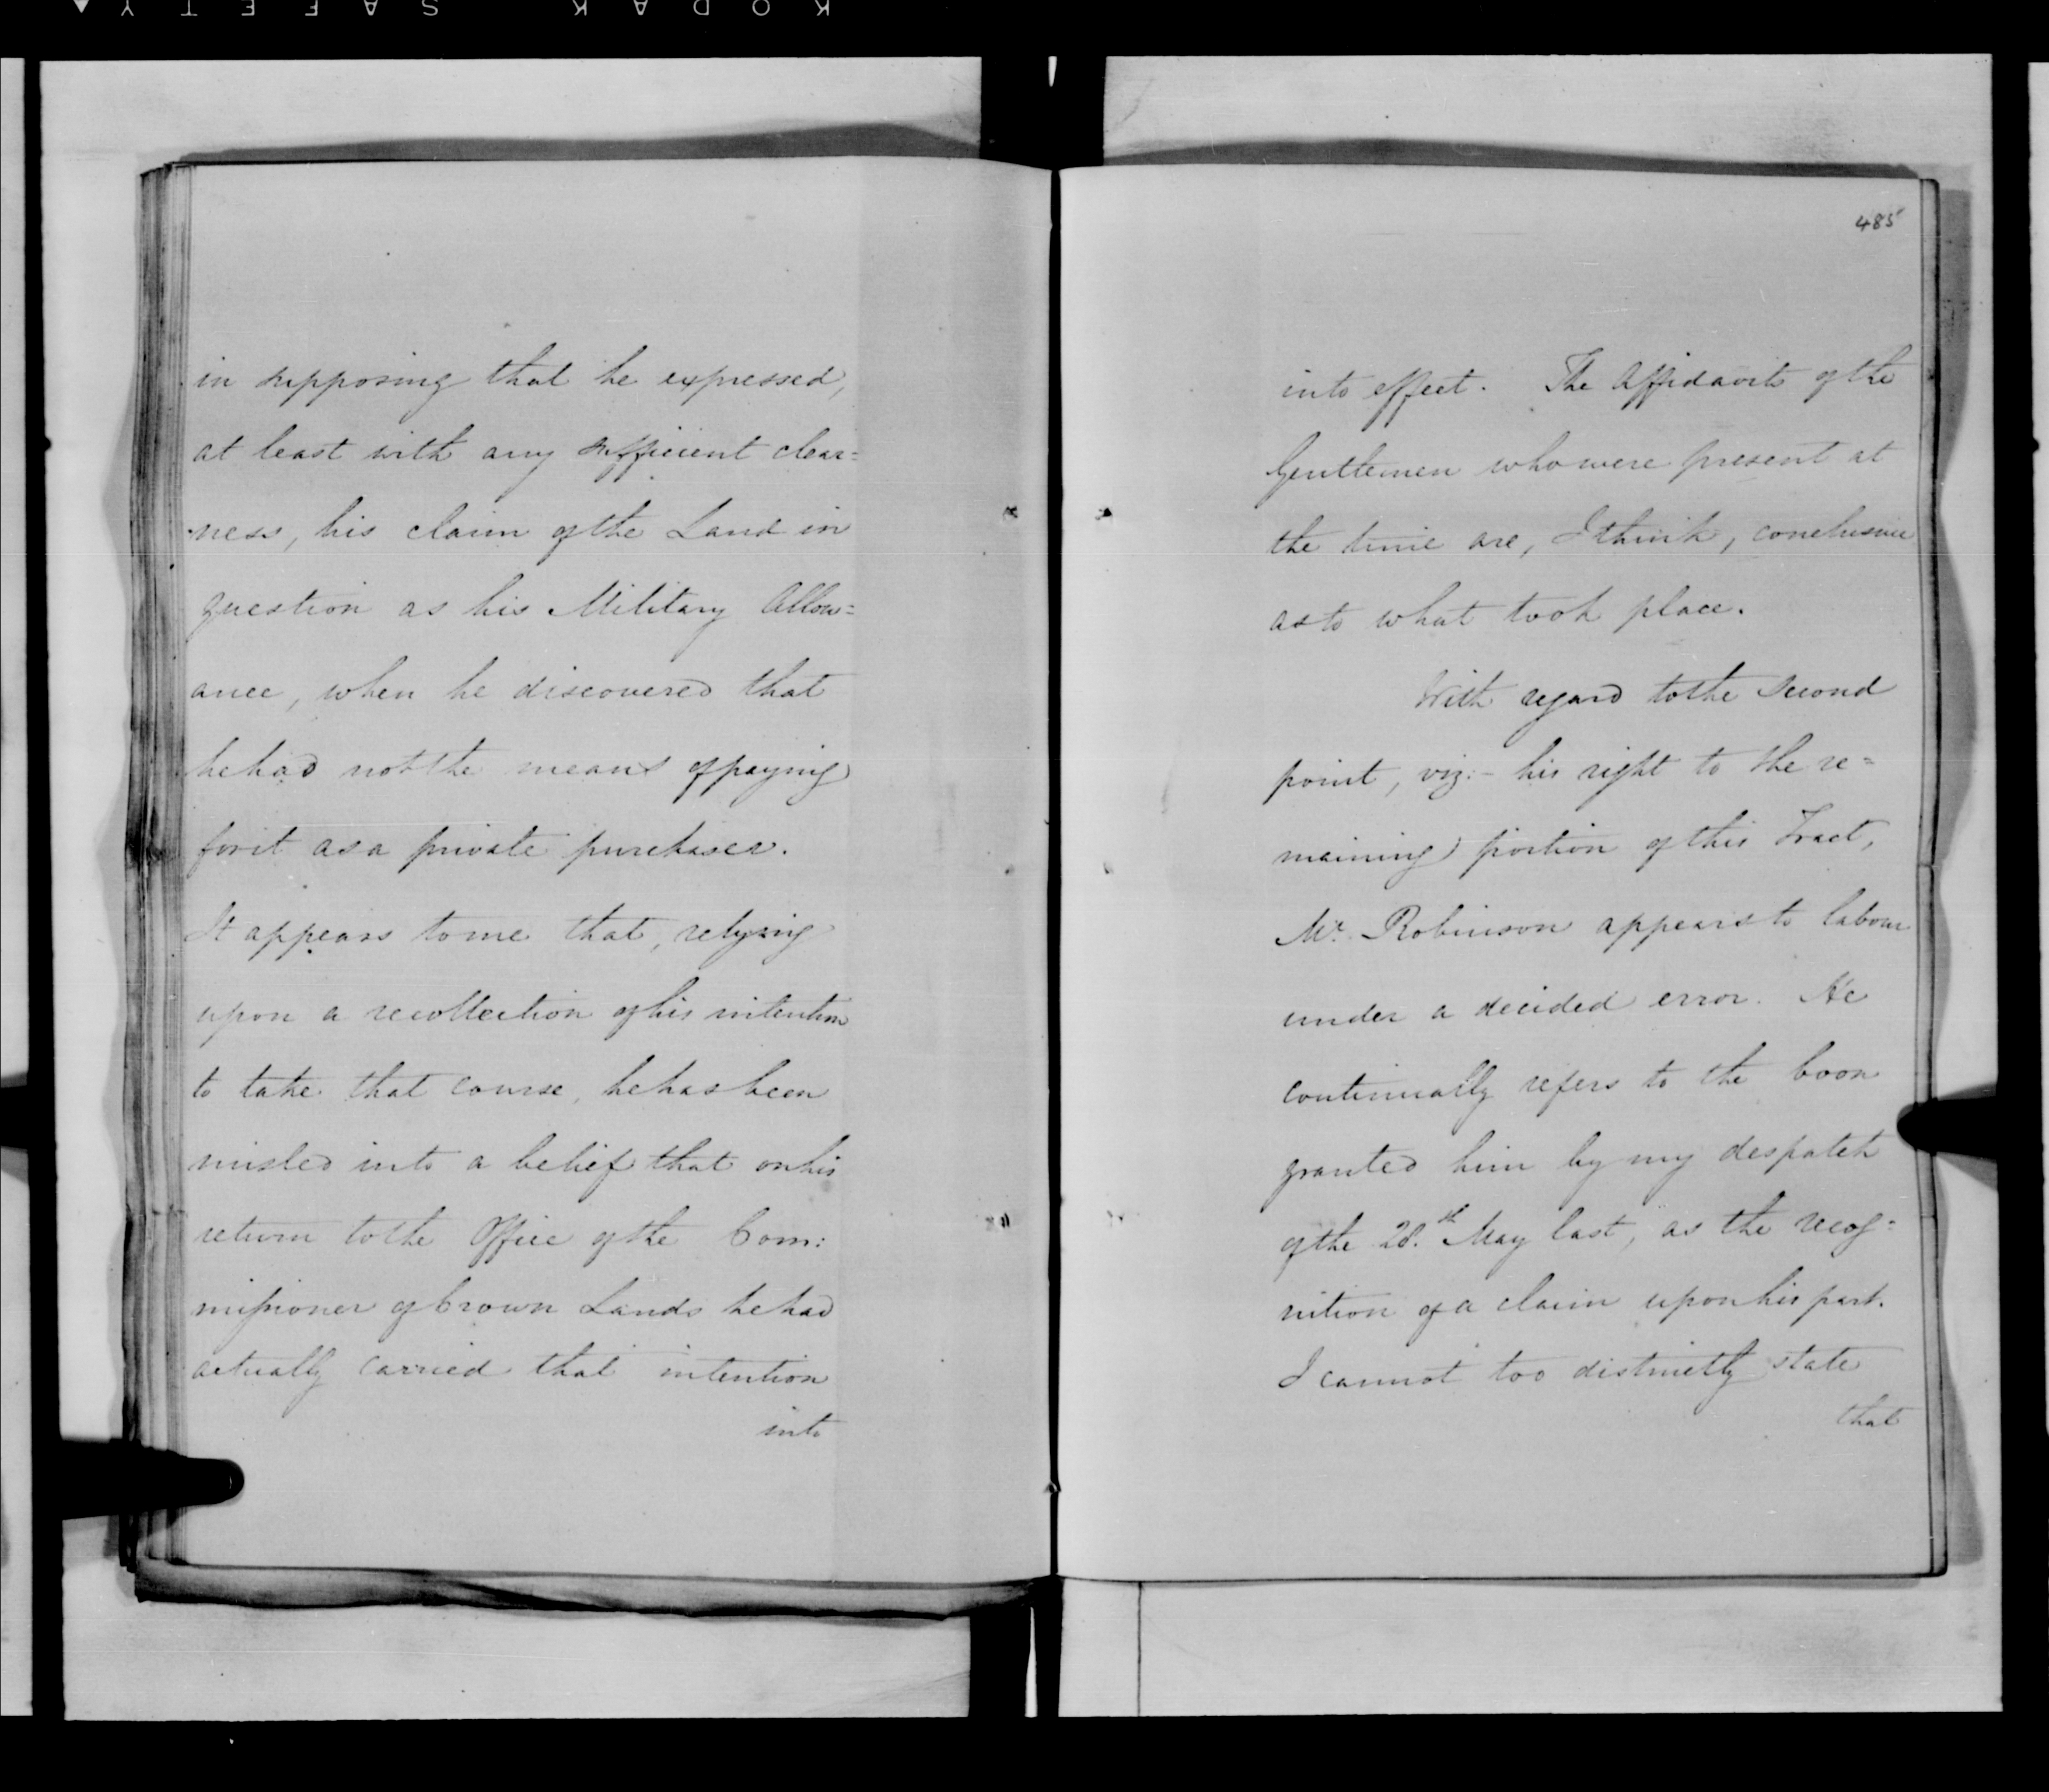 KODAK SAFETY
in supposing that he expressed,
at least with any sufficient clear=
ness, his claim of the Land in
question as his Military Allow=
ance, when he discovered that
he had not the means of paying
for it as a private purchaser.
It appears to me that, relying
upon a recollection of his intention
to take that course, he has been
misled into a belief that on his
return to the Office of the Com:
missioner of Crown Lands he had
actually carried that intention
into
485
into effect. The Affidavits of the
Gentlemen who were present at
the time are, I think, conclusive
as to what took place.
With regard to the second
point, viz:- his right to the re=
maining portion of this Tract,
Mr. Robinson appears to labour
under a decided error. He
continually refers to the boon
granted him by my despatch
of the 28.th May last, as the recog=
nition of a claim upon his part.
I cannot too distinctly state
that